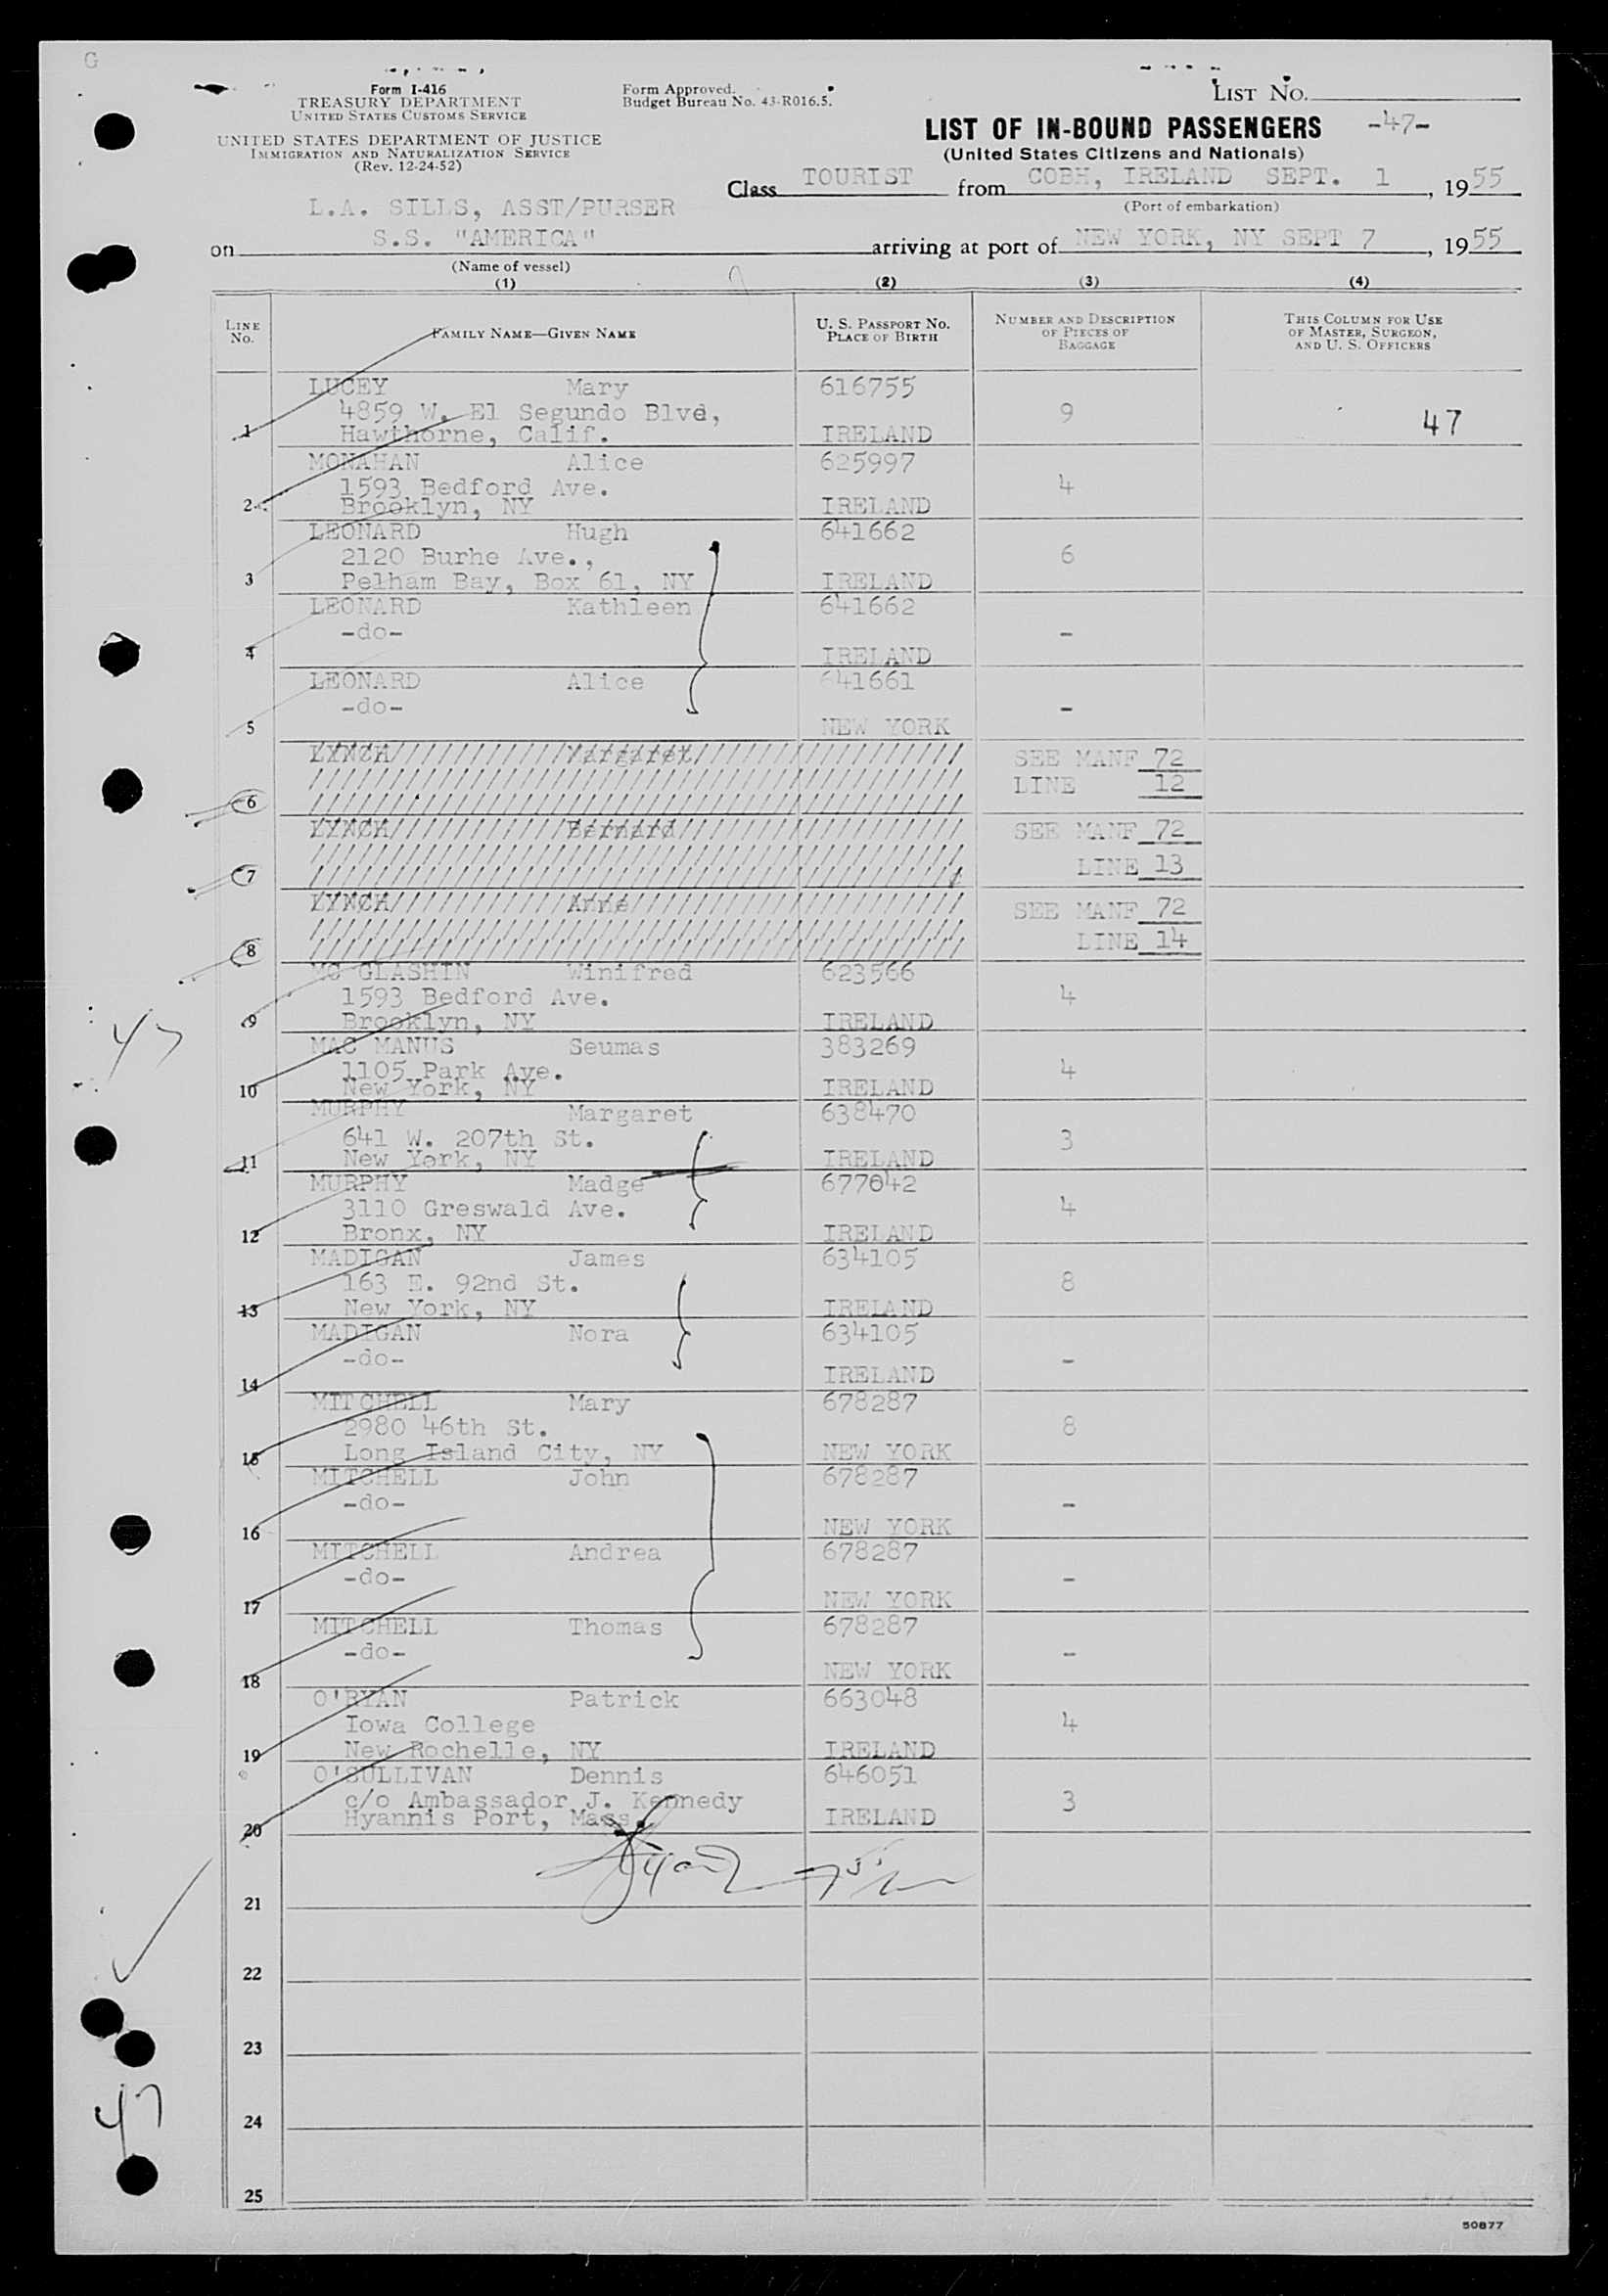 G
Form I-416
TREASURY DEPARTMENT
UNITED STATES CUSTOMS SERVICE
UNITED STATES DEPARTMENT OF JUSTICE
IMMIGRATION AND NATURALIZATION SERVICE
(Rev. 12-24-52)
Form Approved.
Budget Bureau No. 43-R016.5.
LIST NO.
LIST OF IN-BOUND PASSENGERS -47-
(United States Citizens and Nationals)
Class TOURIST from COBH, IRELAND SEPT. 1, 1955
(Port of embarkation)
L.A. SILLS, ASST/PURSER
on S.S. "AMERICA" arriving at port of NEW YORK, NY SEPT 7, 1955
(Name of vessel)
(1) (2) (3) (4)
LINE No. FAMILY NAME—GIVEN NAME U. S. PASSPORT NO. PLACE OF BIRTH NUMBER AND DESCRIPTION OF PIECES OF BAGGAGE THIS COLUMN FOR USE OF MASTER, SURGEON, AND U. S. OFFICERS
LUCEY Mary 616755
4859 W. El Segundo Blvd, 9 47
1 Hawthorne, Calif. IRELAND
MONAHAN Alice 625997
1593 Bedford Ave. 4
2 Brooklyn, NY IRELAND
LEONARD Hugh 641662
2120 Burhe Ave., 6
3 Pelham Bay, Box 61, NY IRELAND
LEONARD Kathleen 641662
-do- -
4 IRELAND
LEONARD Alice 641661
-do- -
5 NEW YORK
LYNCH Margaret SEE MANF 72
6 LINE 12
LYNCH Bernard SEE MANF 72
7 LINE 13
LYNCH Anne SEE MANF 72
8 LINE 14
MC GLASHIN Winifred 623566
1593 Bedford Ave. 4
9 Brooklyn, NY IRELAND
47
MAC MANUS Seumas 383269
1105 Park Ave. 4
10 New York, NY IRELAND
MURPHY Margaret 638470
641 W. 207th St. 3
11 New York, NY IRELAND
MURPHY Madge 677042
3110 Greswald Ave. 4
12 Bronx, NY IRELAND
MADIGAN James 634105
163 E. 92nd St. 8
13 New York, NY IRELAND
MADIGAN Nora 634105
-do- -
14 IRELAND
MITCHELL Mary 678287
2980 46th St. 8
15 Long Island City, NY NEW YORK
MITCHELL John 678287
-do- -
16 NEW YORK
MITCHELL Andrea 678287
-do- -
17 NEW YORK
MITCHELL Thomas 678287
-do- -
18 NEW YORK
O'RYAN Patrick 663048
Iowa College 4
19 New Rochelle, NY IRELAND
O'SULLIVAN Dennis 646051
c/o Ambassador J. Kennedy 3
20 Hyannis Port, Mass. IRELAND
21
22
23
24
47
25
50877